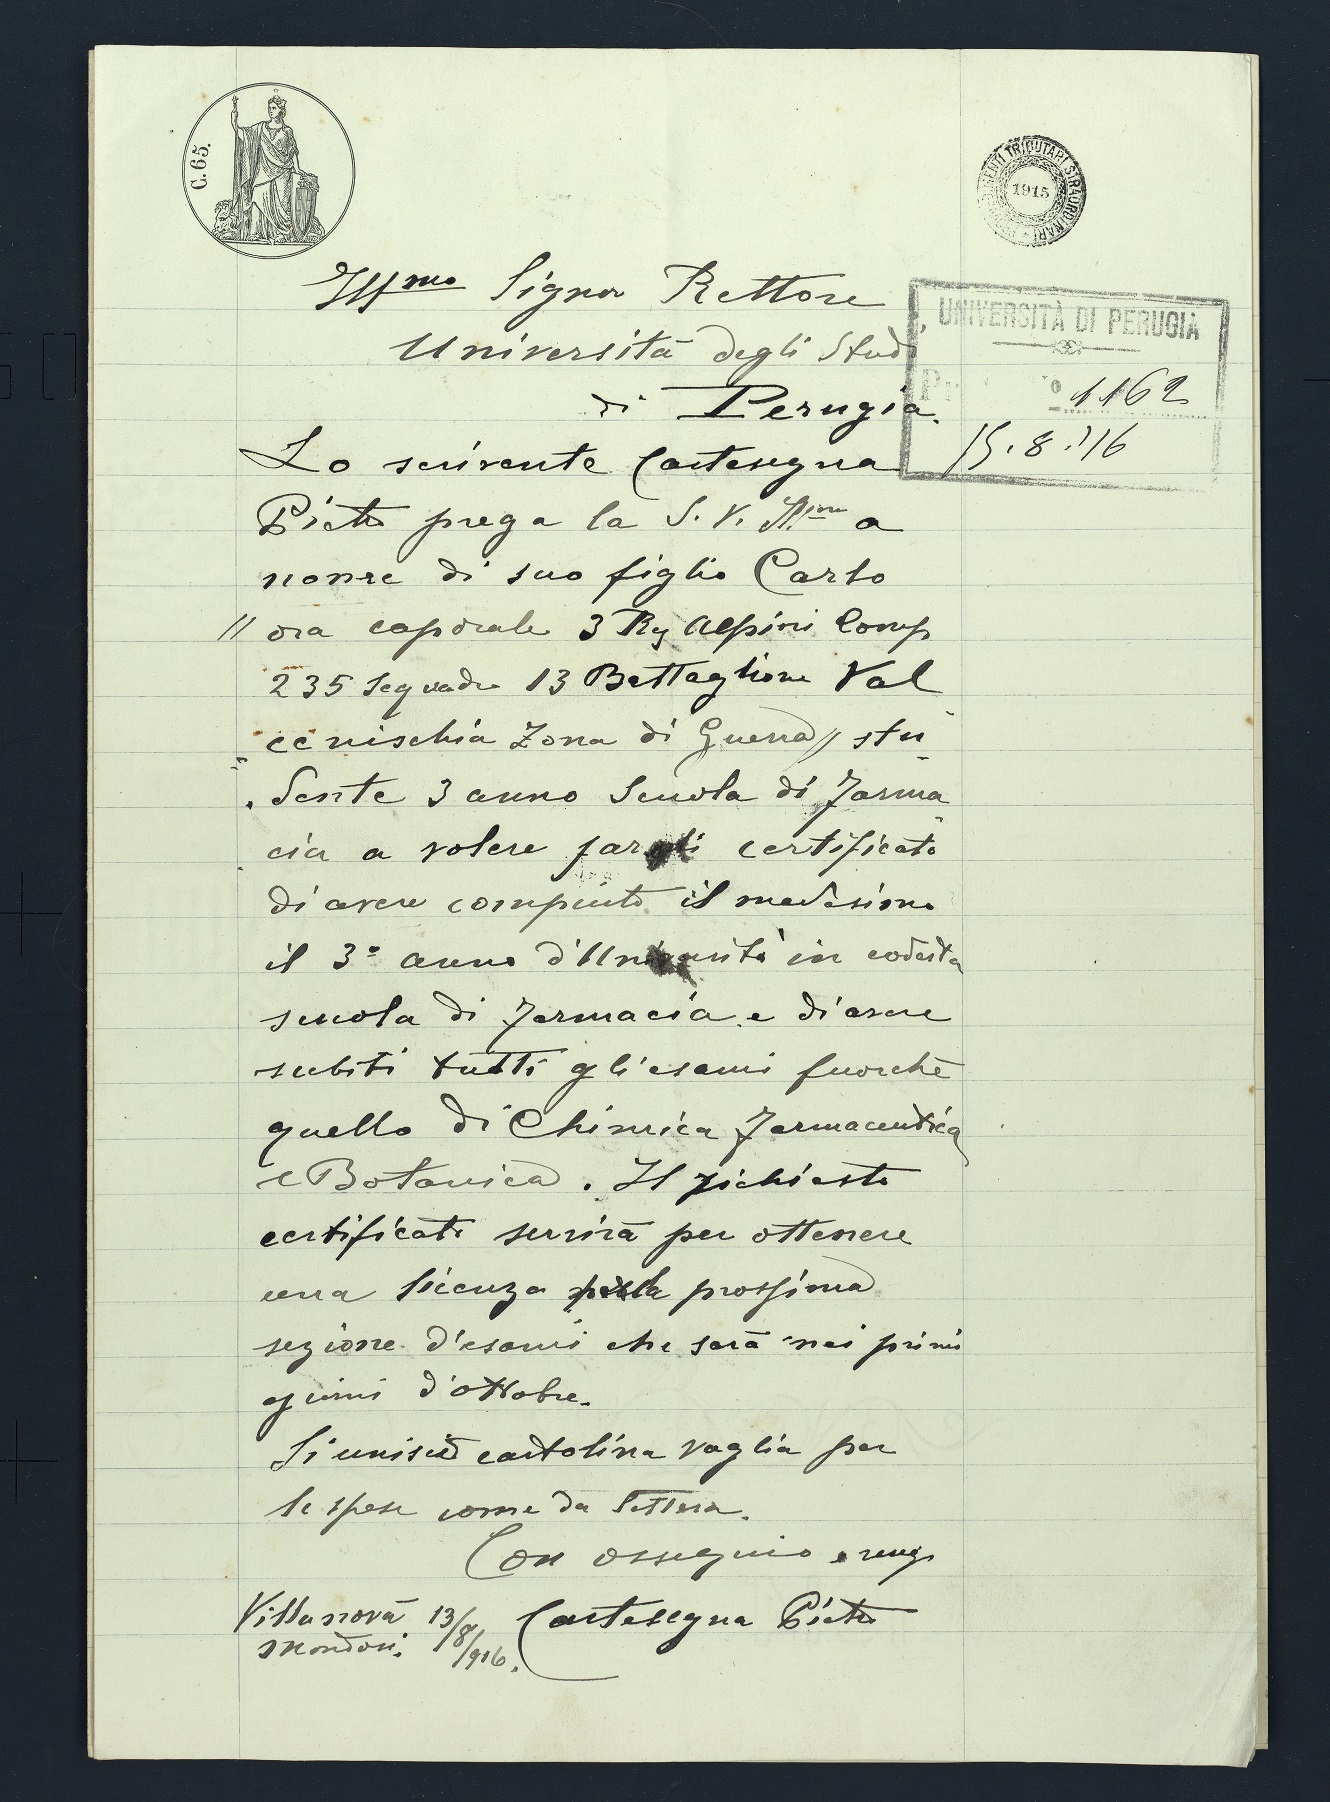 C. 65.
PROVVEDIMENTI TRIBUTARI STRAORDINARI
1915
Illmo Signor Rettore
Università degli Studi
di Perugia.
UNIVERSITÀ DI PERUGIA
Nº 1162
15.8.'16
Lo scrivente Castesegna
Pietro prega la S. V. Illma a
nome di suo figlio Carlo
// ora caporale 3 Rg Alpini Comp
235 Squadra 13 Battaglione Val
cenischia Zona di Guerra // stu
dente 3 anno Scuola di Farma
cia a volere fargli certificato
di avere compiuto il medesimo
il 3º anno d'Università in codesta
scuola di Farmacia e di avere
subiti tutti gli esami fuorchè
quello di Chimica Farmaceutica
e Botanica. Il richiesto
certificato servirà per ottenere
una licenza prossima
sezione d'esami che sarà nei primi
giorni d'ottobre.
Si unisce cartolina vaglia per
le spese come da lettera.
Con ossequio e
Villanova 13/8/916. Castesegna Pietro
Mondovì.